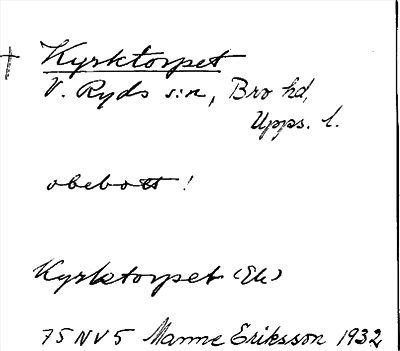 † Kyrktorpet
V. Ryds s:n, Bro hd,
Upps. l.
obebott!
Kyrktorpet (Ek)
75NV5 Manne Eriksson 1932